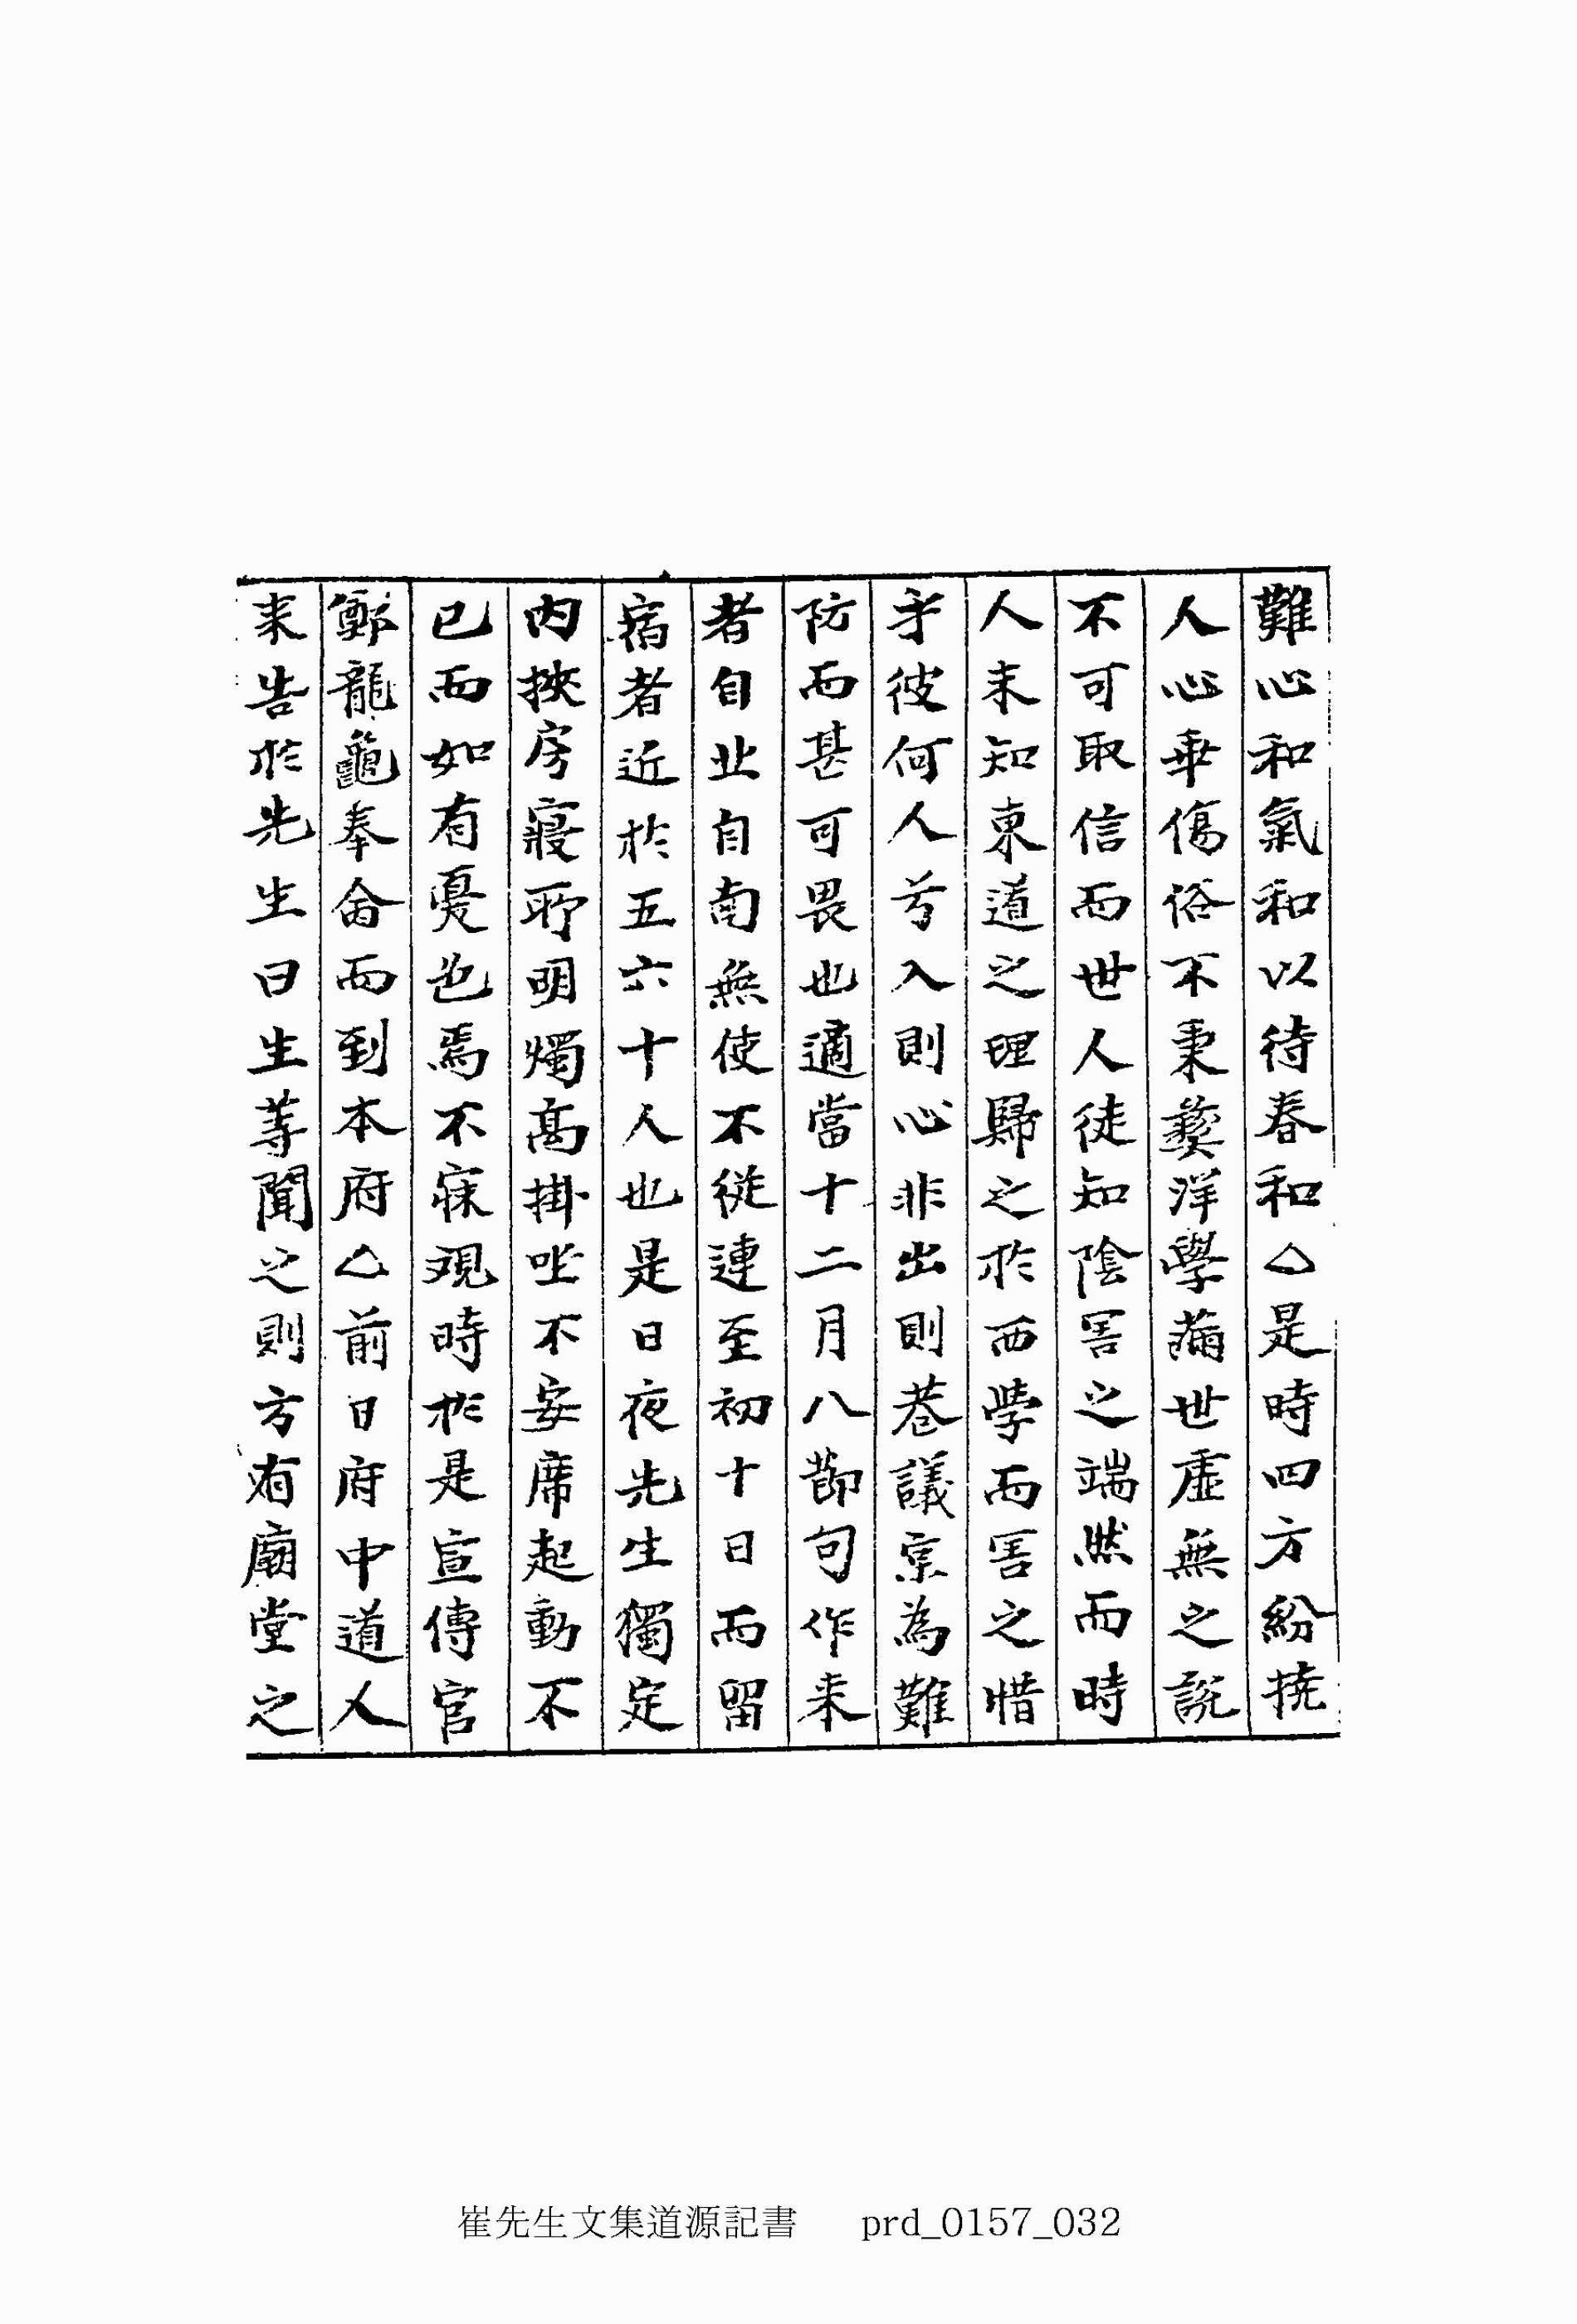 難心和氣和以待春和△是時四方紛撓
人心乖傷俗不秉彛洋學滿世虛無之說
不可取信而世人徒知陰害之端然而時
人未知東道之理歸之於西學而害之惜
乎彼何人兮入則心非出則巷議亰為難
防而甚可畏也適當十二月八節句作来
者自北自南無使不從連至初十日而留
宿者近於五六十人也是日夜先生獨㝎
內挾房寢所明燭高掛坐不安席起動不
已而如有憂色焉不寐現時於是宣傳官
鄭龍龜奉命而到本府△前日府中道人
来告於先生曰生等聞之則方有廟堂之
崔先生文集道源記書 prd_0157_032